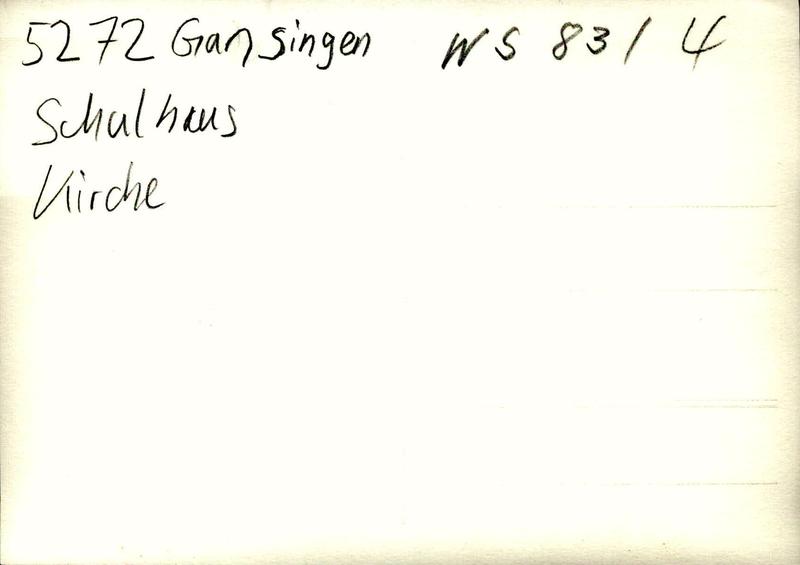 5272 Gansingen WS 83/4
Schulhaus
Kirche